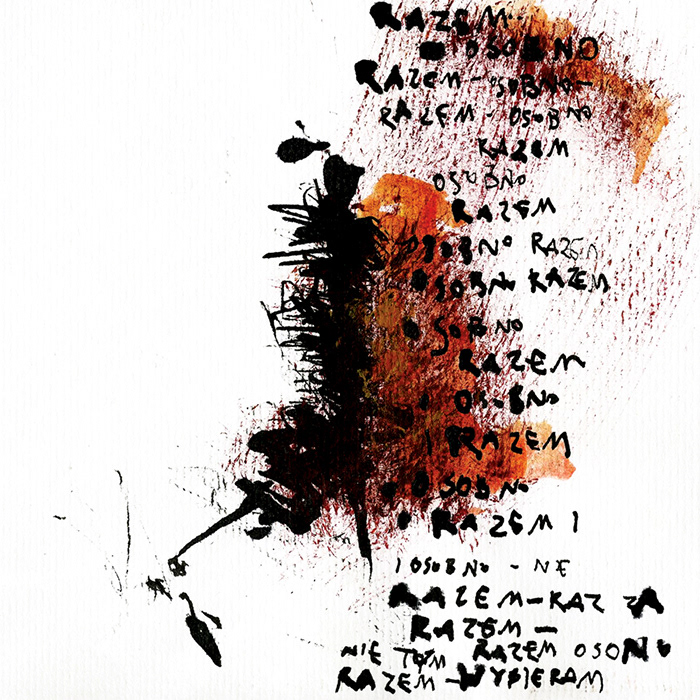 RAZEM
OSOBNO
RAZEM - OSOBNO -
RAZEM - OSOBNO
RAZEM
OSOBNO
RAZEM
OSOBNO RAZEM
OSOBNO RAZEM
OSOBNO
RAZEM
I OSOBNO
I RAZEM
I OSOBNO
I RAZEM I
I OSOBNO - NE
RAZEM
RAZEM -
NIE RAZEM OSOBNO
RAZEM - WYBIERAM